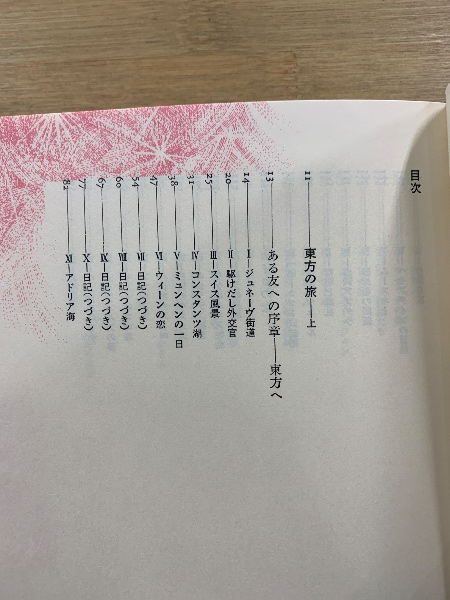 目次
11 東方の旅——上
13 ある友への序章——東方へ
14 I—ジュネーヴ街道
20 II—駆けだし外交官
25 III—スイス風景
31 IV—コンスタンツ湖
38 V—ミュンヘンの一日
47 VI—ウィーンの恋
54 VII—日記(つづき)
60 VIII—日記(つづき)
67 IX—日記(つづき)
77 X—日記(つづき)
82 XI—アドリア海